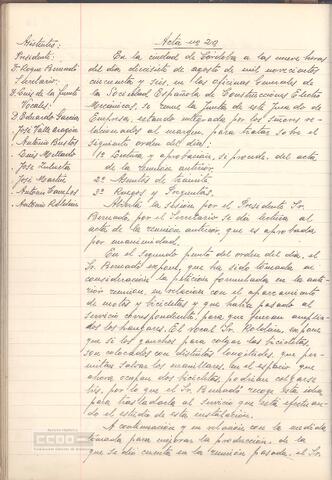 Acta nº 29
Asistentes:
Presidente:
D. Roque Bernardo
Secretario:
D. Luis de la Fuente
Vocales:
D. Eduardo García
José Valle Aragón
Antonio Bustos
Luis Mellado
José Zurheta
José Martín
Antonio Campos
Antonio Roldán
En la ciudad de Córdoba a las nueve horas
del día diecisiete de agosto de mil novecientos
cincuenta y seis, en las oficinas Generales de
la Sociedad Española de Construcciones Electro
Mecánicas, se reune la Junta de este Jurado de
Empresa, estando integrada por los señores re-
lacionados al margen, para tratar sobre el
siguiente orden del día:
1º Lectura y aprobación, si procede, del acta
de la reunión anterior.
2º Asuntos de trámite
3º Ruegos y Preguntas.
Abierta la sesión por el Presidente Sr.
Bernardo, por el Secretario se dió lectura al
acta de la reunión anterior, que es aprobada
por unanimidad.
En el segundo punto del orden del día, el
Sr. Bernardo expone, que ha sido tomada en
consideración la petición formulada en la ante-
rior reunión, en relación con el aparcamiento
de motos y bicicletas y que había pasado al
servicio correspondiente, para que fueran amplia-
dos los hangares. El vocal Sr. Roldán, expone
que si los ganchos para colgar las bicicletas,
son colocados con distintas longitudes, que per-
mitan salvar los manillares, en el espacio que
ahora ocupan dos bicicletas, podrían colgarse
tres, por lo que el Sr. Bernardo recoge esta idea,
para trasladarla al servicio que está efectuan-
do el estudio de esta instalación.
A continuación y en relación con la medida
tomada para mejorar la producción, de la
que se dió cuenta en la reunión pasada, el Sr.
CCOO